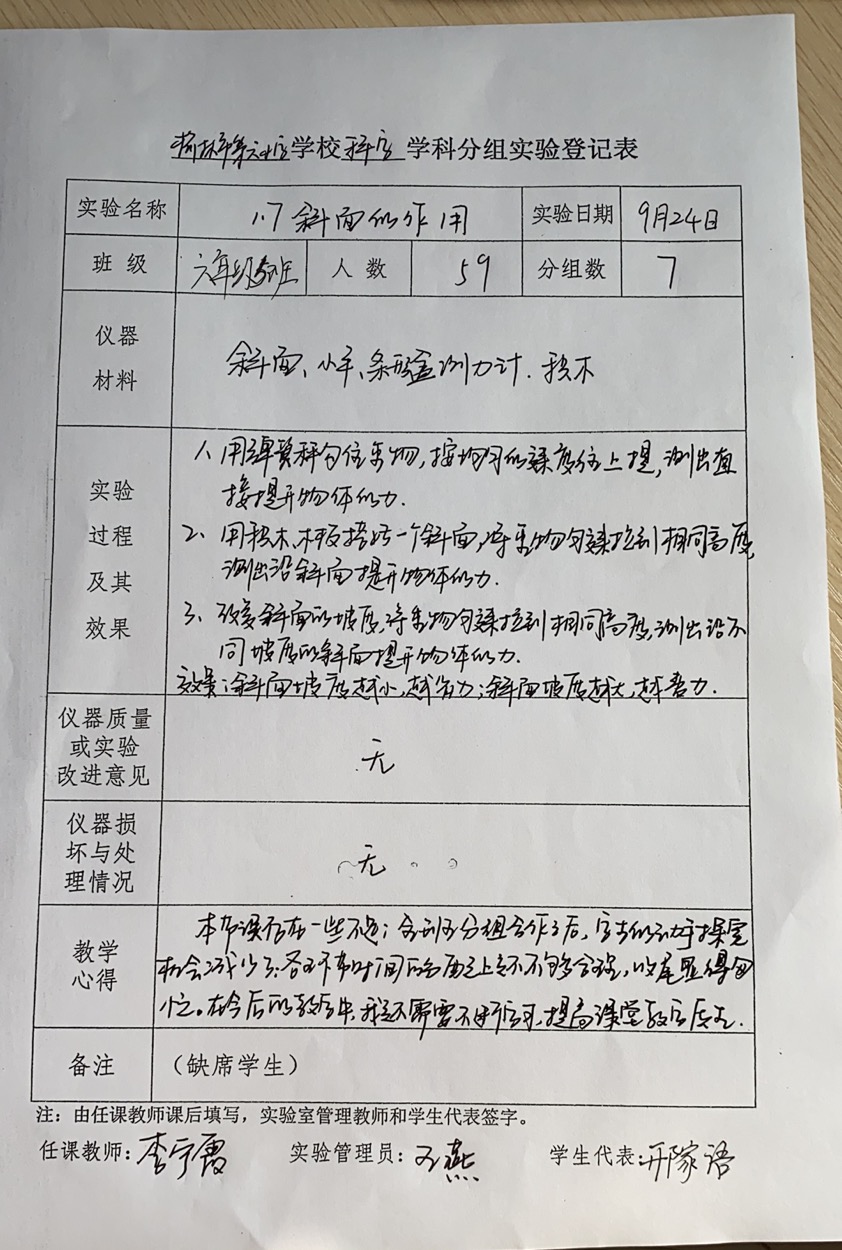 学校科学学科分组实验登记表
实验名称 1.7 斜面的作用 实验日期 9月24日
班级 六年级5班 人数 59 分组数 7
仪器
材料
斜面、小车、条形盒测力计、积木
实验
过程
及其
效果
1、用弹簧秤勾住重物,按均匀的速度往上提,测出直
接提升物体的力.
2、用积木、木板搭好一个斜面,将重物匀速拉到相同高度,
测出沿斜面提升物体的力.
3、改变斜面的坡度,将重物匀速拉到相同高度,测出沿不
同坡度的斜面提升物体的力.
效果:斜面坡度越小,越省力;斜面坡度越大,越费力.
仪器质量
或实验
改进意见
无
仪器损
坏与处
理情况
无
教学
心得
本节课存在一些不足:分组合作之后,学生的动手操作
机会减少了;各环节时间的上还不够合理,收尾显得匆
忙。在今后的教学中,我还需要不断学习,提高课堂教学质量.
备注 (缺席学生)
注:由任课教师课后填写,实验室管理教师和学生代表签字。
任课教师:李宁霞 实验管理员:王燕 学生代表:家语